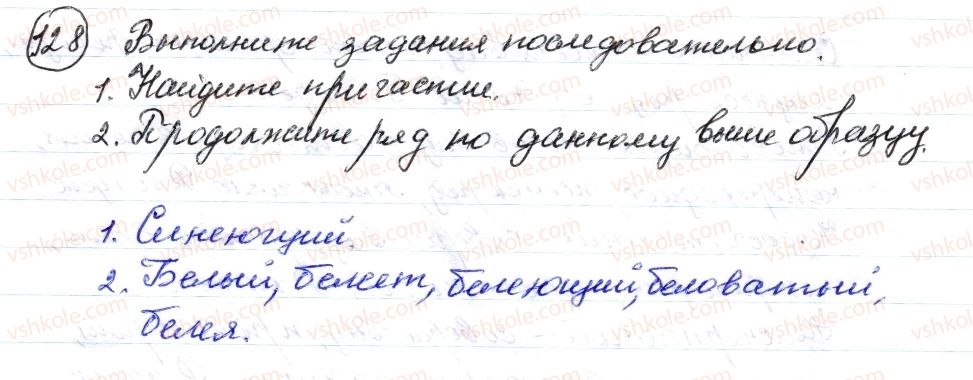 128 Выполните задания последовательно.
1. Найдите причастие.
2. Продолжите ряд по данному выше образцу.
1. Синеющий.
2. Белый, белеет, белеющий, беловатый,
белея.